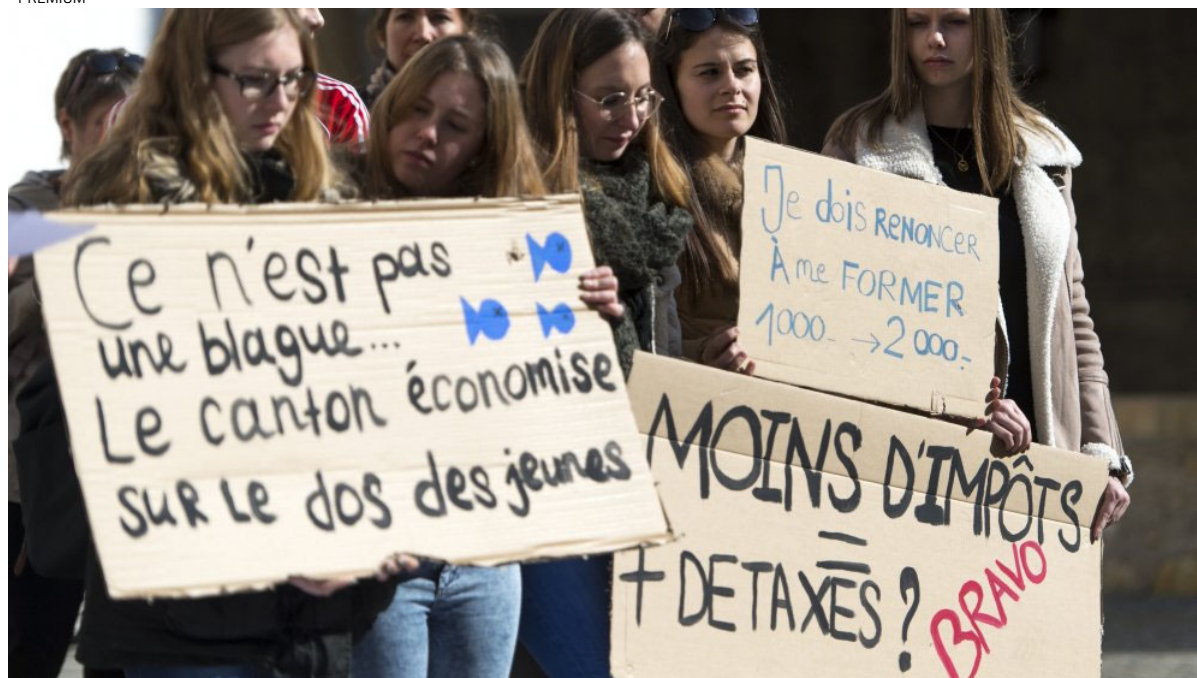 PREMIUM
Ce n'est pas
une blague...
Le canton économise
sur le dos des jeunes
Je dois RENONCER
À me FORMER
1000.- → 2000.-
MOINS D'IMPÔTS
=
+ DE TAXES ?
BRAVO